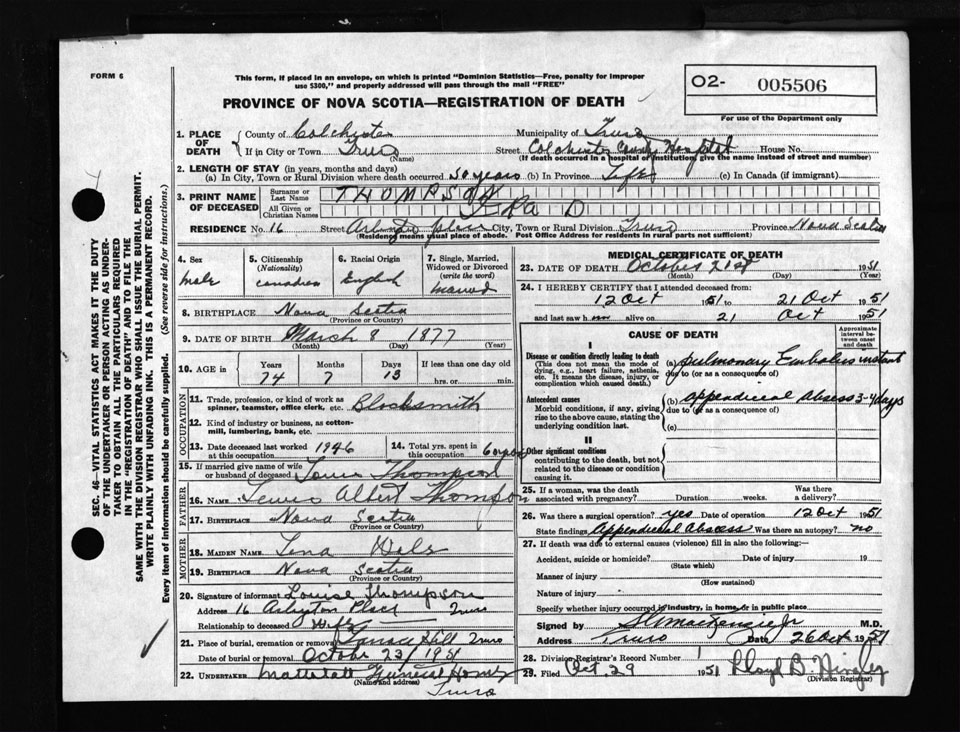 FORM 6
This form, if placed in an envelope, on which is printed "Dominion Statistics—Free, penalty for improper
use $300," and properly addressed will pass through the mail "FREE"
PROVINCE OF NOVA SCOTIA—REGISTRATION OF DEATH
O2- 005506
For use of the Department only
1. PLACE OF DEATH
County of Colchester Municipality of Truro
If in City or Town Truro Street Colchester County Hospital House No.
(Name) (If death occurred in a hospital or institution, give the name instead of street and number)
2. LENGTH OF STAY (in years, months and days)
(a) In City, Town or Rural Division where death occurred 50 years (b) In Province Life (c) In Canada (if immigrant)
3. PRINT NAME OF DECEASED
Surname or Last Name THOMPSON
All Given or Christian Names D
RESIDENCE No. 16 Street Arlington place City, Town or Rural Division Truro Province Nova Scotia
(Residence means usual place of abode. Post Office Address for residents in rural parts not sufficient)
4. Sex male
5. Citizenship (Nationality) Canadian
6. Racial Origin English
7. Single, Married, Widowed or Divorced (write the word) married
8. BIRTHPLACE Nova Scotia
(Province or Country)
9. DATE OF BIRTH March 8 1877
(Month) (Day) (Year)
10. AGE in Years Months Days If less than one day old
74 7 13 hrs. or min.
OCCUPATION
11. Trade, profession, or kind of work as spinner, teamster, office clerk, etc. Blacksmith
12. Kind of industry or business, as cotton-mill, lumbering, bank, etc.
13. Date deceased last worked at this occupation 1946
14. Total yrs. spent in this occupation 60
15. If married give name of wife or husband of deceased Thompson
FATHER
16. NAME Lewis Albert Thompson
17. BIRTHPLACE Nova Scotia
(Province or Country)
MOTHER
18. MAIDEN NAME Lena
19. BIRTHPLACE Nova Scotia
(Province or Country)
20. Signature of informant Louise Thompson
Address 16 Arlington Place Truro
Relationship to deceased Wife
21. Place of burial, cremation or removal Hill Truro
Date of burial or removal October 23/1951
22. UNDERTAKER Mattatall Funeral Home
(Name and address)
Truro
MEDICAL CERTIFICATE OF DEATH
23. DATE OF DEATH October 21st 1951
(Month) (Day) (Year)
24. I HEREBY CERTIFY that I attended deceased from:
12 Oct 1951 to 21 Oct 1951
and last saw h im alive on 21 Oct 1951
CAUSE OF DEATH
Approximate interval between onset and death
I
Disease or condition directly leading to death
(This does not mean the mode of dying, e.g., heart failure, asthenia, etc. It means the disease, injury, or complication which caused death.)
(a) pulmonary Embolus instant
due to (or as a consequence of)
Antecedent causes
Morbid conditions, if any, giving rise to the above cause, stating the underlying condition last.
(b) appendiceal Abscess 3-4 days
due to (or as a consequence of)
(c)
II
Other significant conditions
contributing to the death, but not related to the disease or condition causing it.
25. If a woman, was the death associated with pregnancy? Duration weeks. Was there a delivery?
26. Was there a surgical operation? yes Date of operation 12 Oct 1951
State findings Appendiceal Abscess Was there an autopsy? no
27. If death was due to external causes (violence) fill in also the following:—
Accident, suicide or homicide? Date of injury 19
(State which)
Manner of injury
(How sustained)
Nature of injury
Specify whether injury occurred in industry, in home, or in public place
Signed by M.D.
Address Truro Date 26 Oct 1951
28. Division Registrar's Record Number
29. Filed Oct. 29 1951 Lloyd B.
(Division Registrar)
SEC. 46—VITAL STATISTICS ACT MAKES IT THE DUTY
OF THE UNDERTAKER OR PERSON ACTING AS UNDER-
TAKER TO OBTAIN ALL THE PARTICULARS REQUIRED
IN THE "REGISTRATION OF DEATH" AND TO FILE THE
SAME WITH THE DIVISION REGISTRAR WHO SHALL ISSUE THE BURIAL PERMIT.
WRITE PLAINLY WITH UNFADING INK. THIS IS A PERMANENT RECORD.
Every item of information should be carefully supplied. (See reverse side for instructions.)